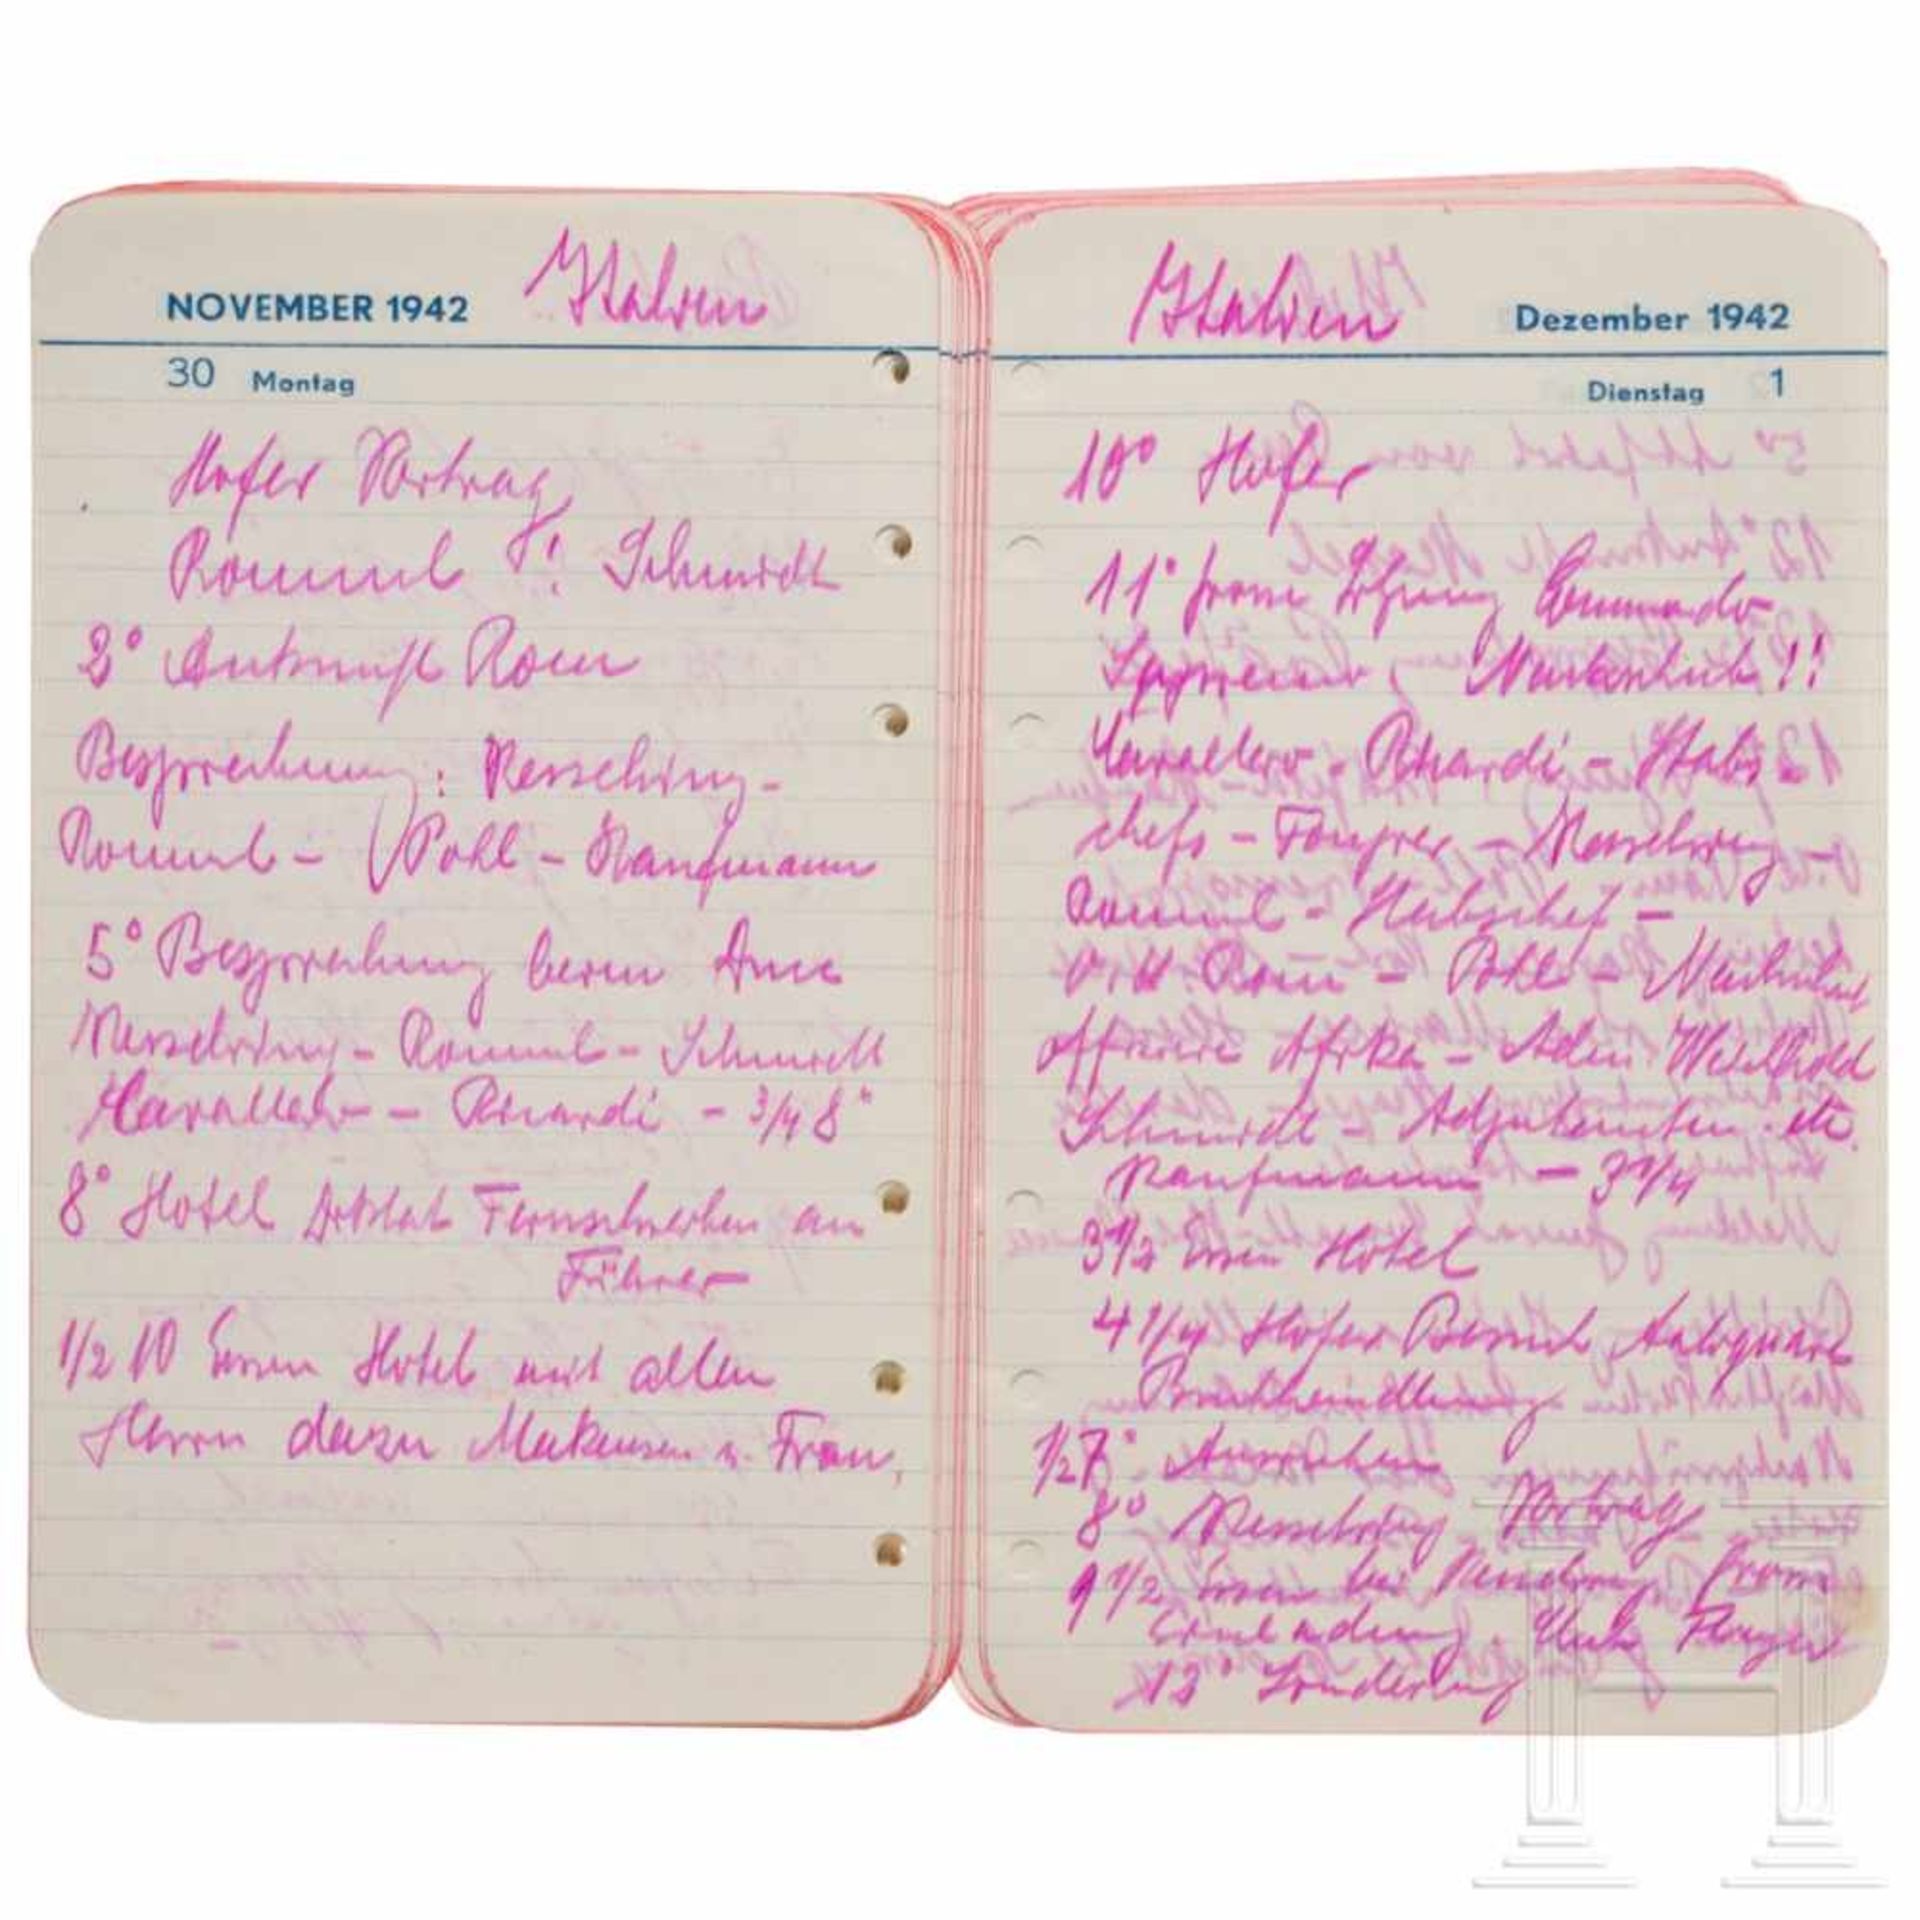 NOVEMBER 1942 Italien
30 Montag
Hofer Vortrag
Rommel Schmidt
2° Ankunft Rom
Besprechung: Kesselring -
Rommel - Pohl - Kaufmann
5° Besprechung beim Duce
Kesselring - Rommel - Schmidt
Cavallero - Ricardi - 3/4 8°
8° Hotel Diktat Fernschreiben an
Führer
1/2 10 Essen Hotel mit allen
Herrn dazu Makensen u. Frau,
Italien Dezember 1942
Dienstag 1
10° Hofer
11° Sitzung Commando
Cavallero - Ricardi - Stabs
chefs - Kesselring -
Rommel -
Rom - Pohl -
Offiziere Afrika -
Schmidt - Adjutanten etc.
Kaufmann - 3 1/4
3 1/2 Essen Hotel
4 1/4 Hofer Besuch Antiquar
Buchhandlung
1/2 7° Ausruhen
8° Kesselring Vortrag
9 1/2 Essen bei Kesselring
Einladung
12° Sonderzug